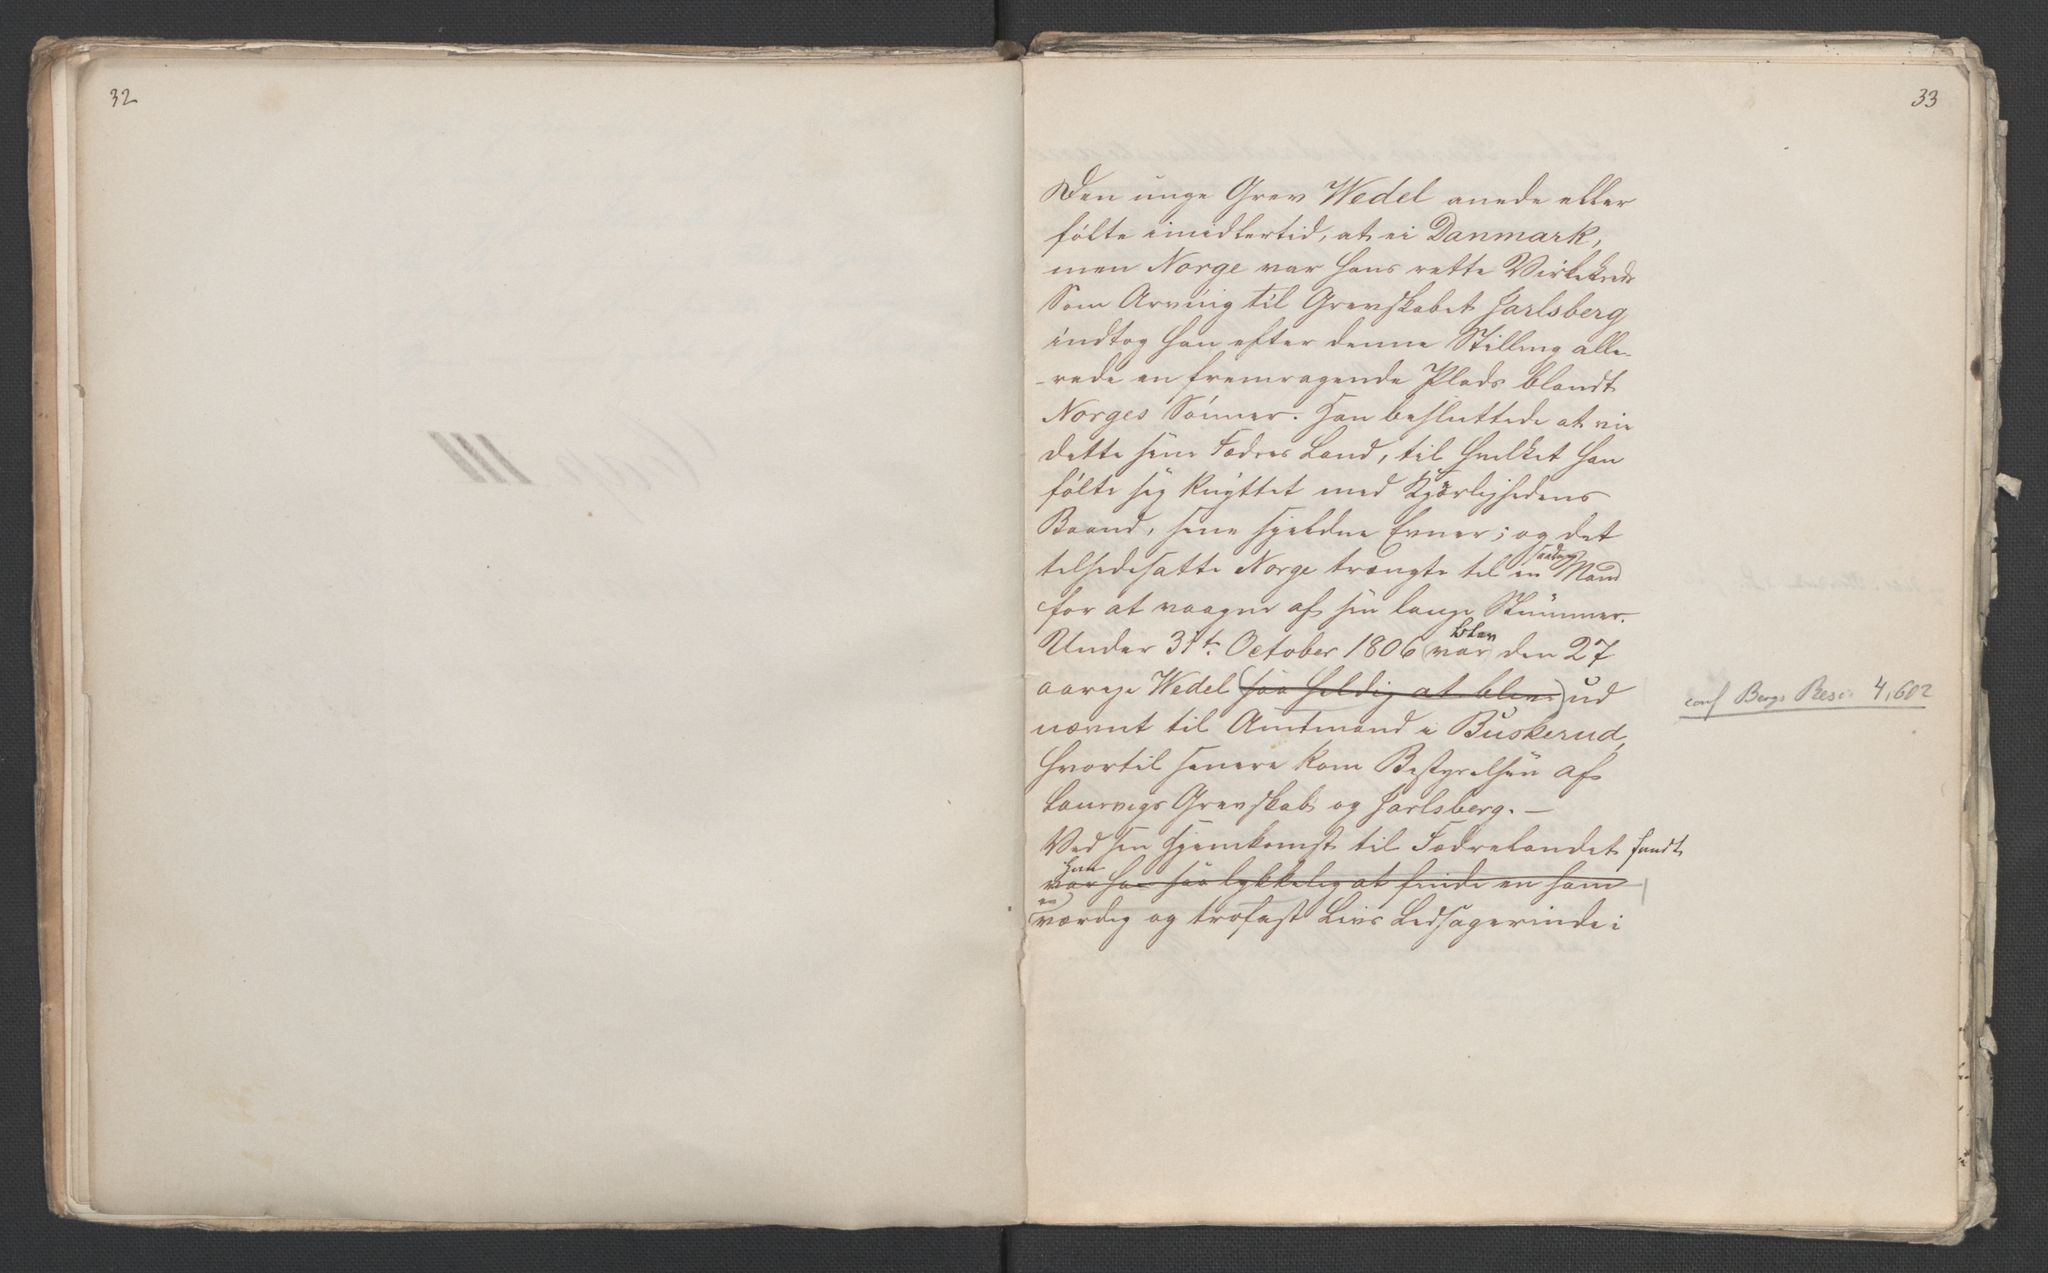 32
33
Den unge Grev Wedel anede eller
følte imidlertid, at ei Danmark,
men Norge var hans rette Virkekreds
Som Arving til Grevskabet Jarlsberg
indtog han efter denne Stilling alle-
-rede en fremragende Plads blandt
Norges Sønner. Han besluttede at vie
dette sine Fædres Land, til hvilket han
følte sig knyttet med Kjærlighedens
Baand, sine sjeldne Evner; og det
tilsidesatte Norge trængte til en saadan Mand
for at vaagne af sin lange Slummer.
Under 31te October 1806 (var) blev den 27
aarige Wedel (saa heldig at blive) ud
nævnt til Amtmand i Buskerud,
hvortil senere kom Bestyrelsen af
Laurvigs Grevskab og Jarlsberg. —
Ved sin Hjemkomst til Fædrelandet fandt
han
var han saa lykkelig at finde en ham
en
værdig og trofast Livs Ledsagerinde i
conf Bergs Resc: 4,602